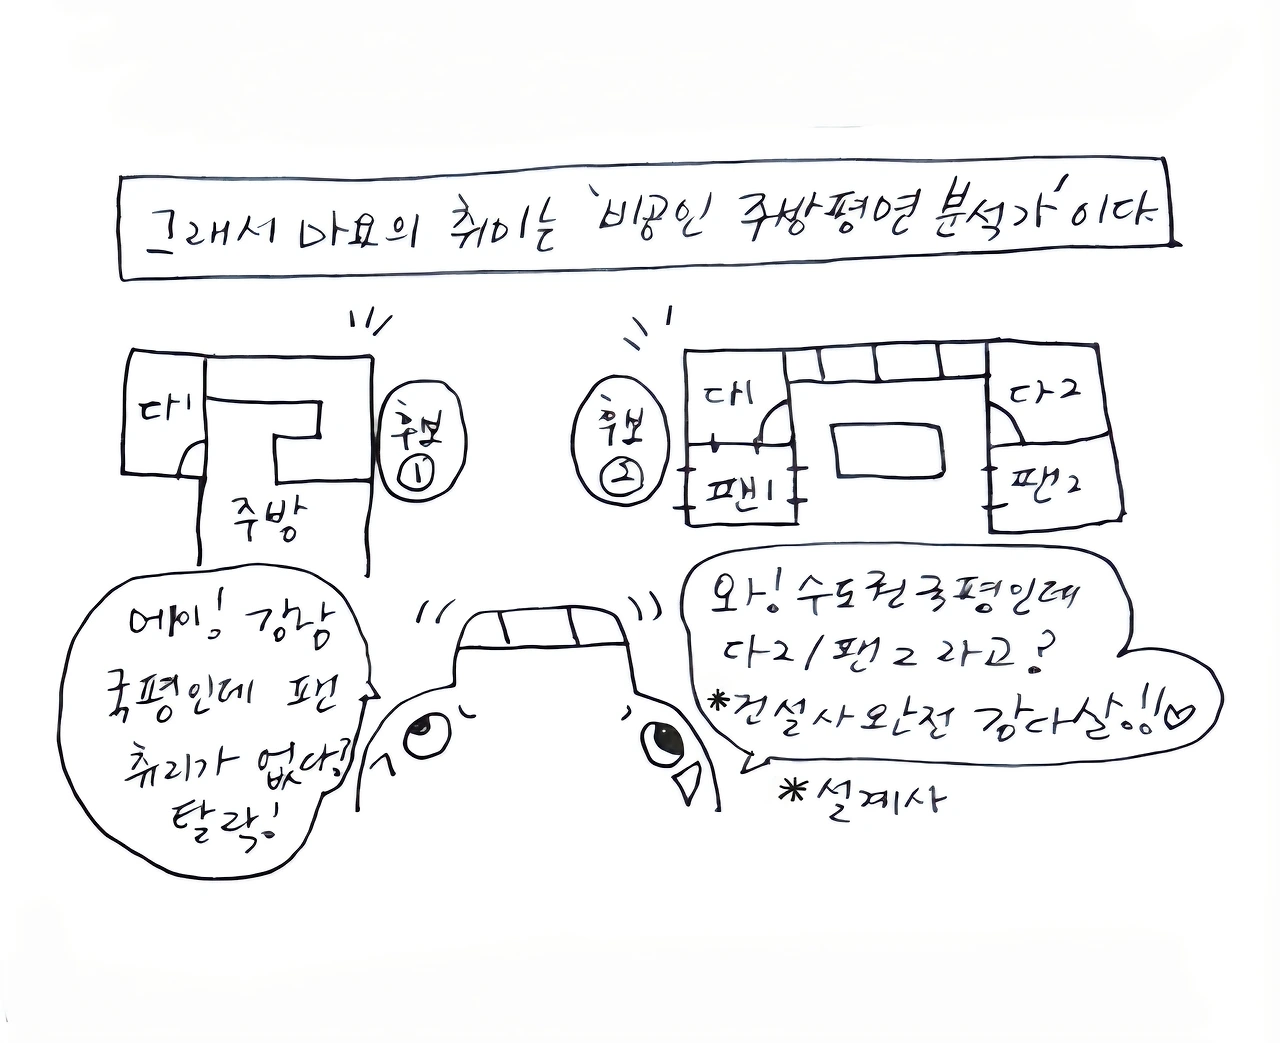 그래서 마요의 취미는 '비공인 주방평면 분석가'이다
다1
주방
후보
①
후보
②
다1
팬1
다2
팬2
에이! 강남
국평인데 팬
츄리가 없다?
탈락!
와! 수도권 국평인데
다2/팬2 라고?
*건설사 완전 강다살!!♡
*설계사